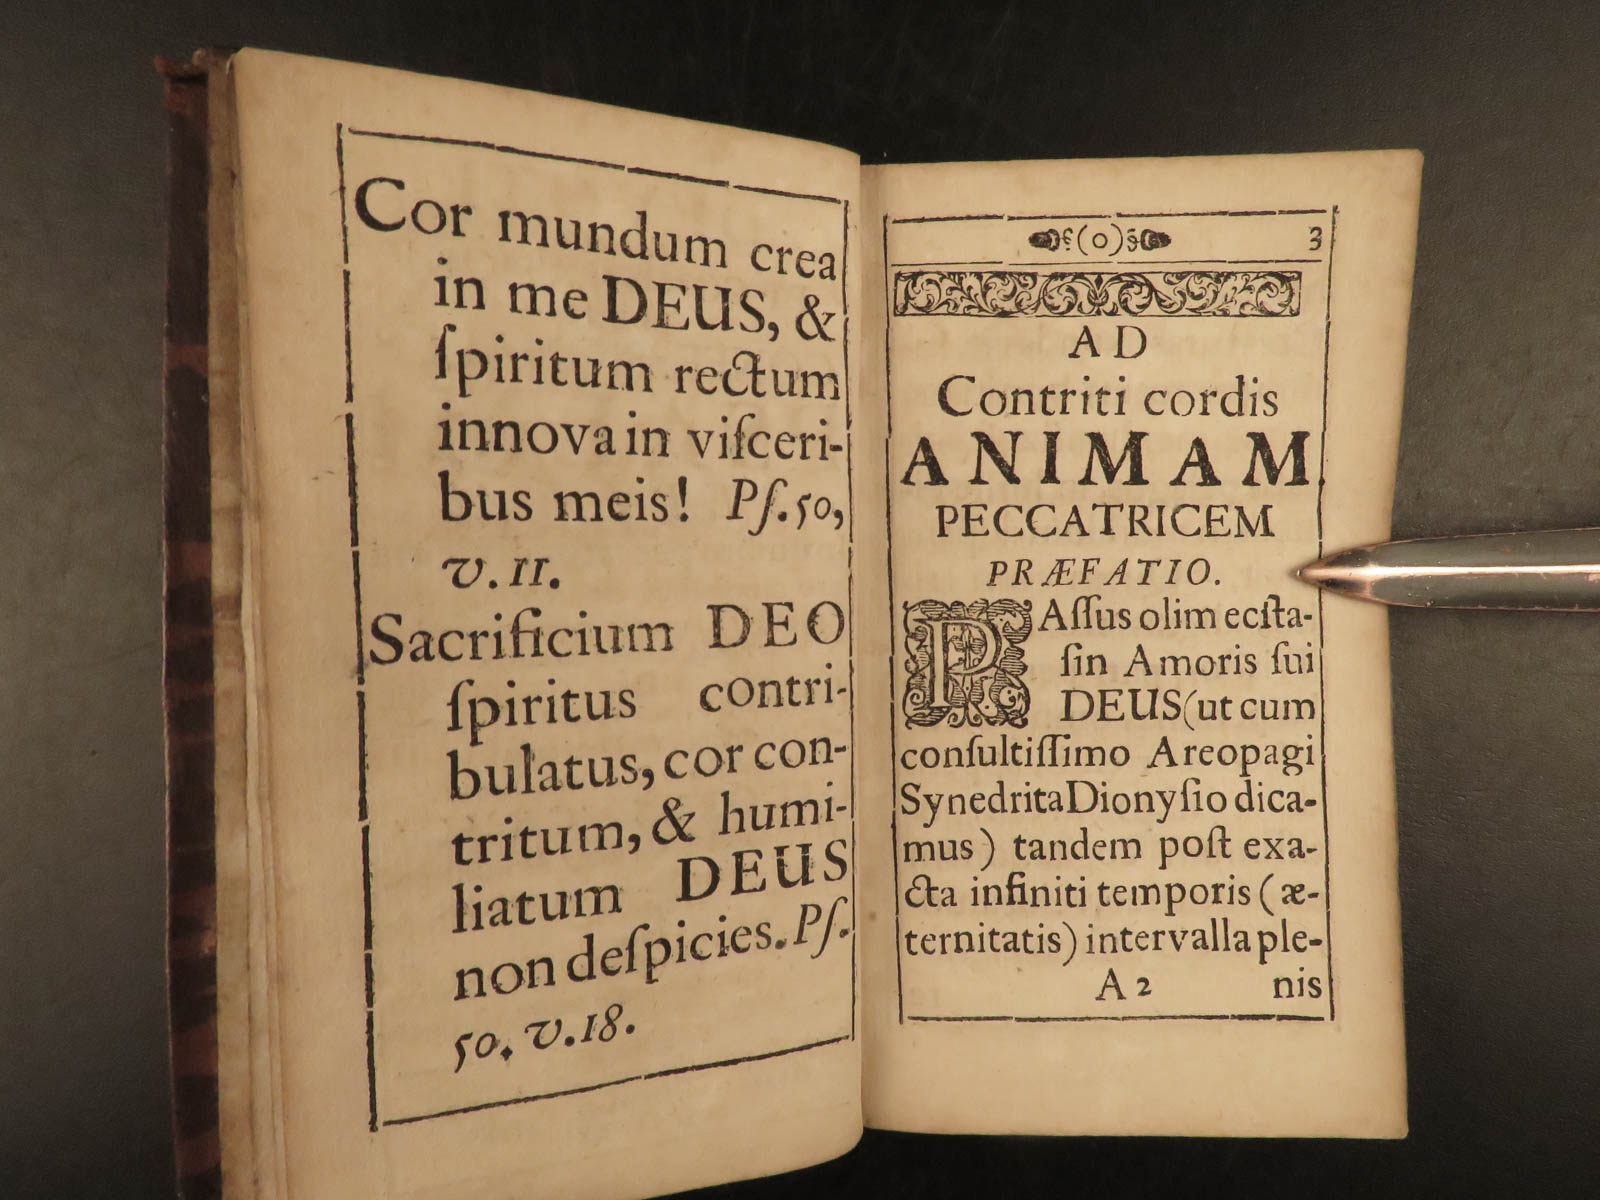 Cor mundum crea
in me DEUS, &
ſpiritum rectum
innova in viſceri-
bus meis! Pſ. 50,
v. 11.
Sacrificium DEO
ſpiritus contri-
bulatus, cor con-
tritum, & humi-
liatum DEUS
non deſpicies. Pſ.
50. v. 18.
(0) 3
AD
Contriti cordis
ANIMAM
PECCATRICEM
PRÆFATIO.
PAſſus olim ecſta-
ſin Amoris ſui
DEUS (ut cum
conſultiſſimo Areopagi
Synedrita Dionyſio dica-
mus) tandem poſt exa-
cta infiniti temporis (æ-
ternitatis) intervalla ple-
A 2 nis